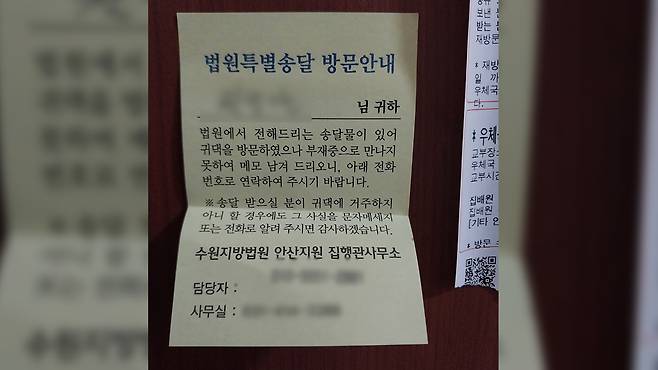 법원특별송달 방문안내
님 귀하
법원에서 전해드리는 송달물이 있어
귀댁을 방문하였으나 부재중으로 만나지
못하여 메모 남겨 드리오니, 아래 전화
번호로 연락하여 주시기 바랍니다.
※ 송달 받으실 분이 귀댁에 거주하지
아니 할 경우에도 그 사실을 문자메세지
또는 전화로 알려 주시면 감사하겠습니다.
수원지방법원 안산지원 집행관사무소
담당자 :
사무실 :
보낸
받는
재방문
* 재방
일 까
우체국
다.
*우체
교부장소
우체국
교부시간
집배원
집배원
[기타 안
* 방문